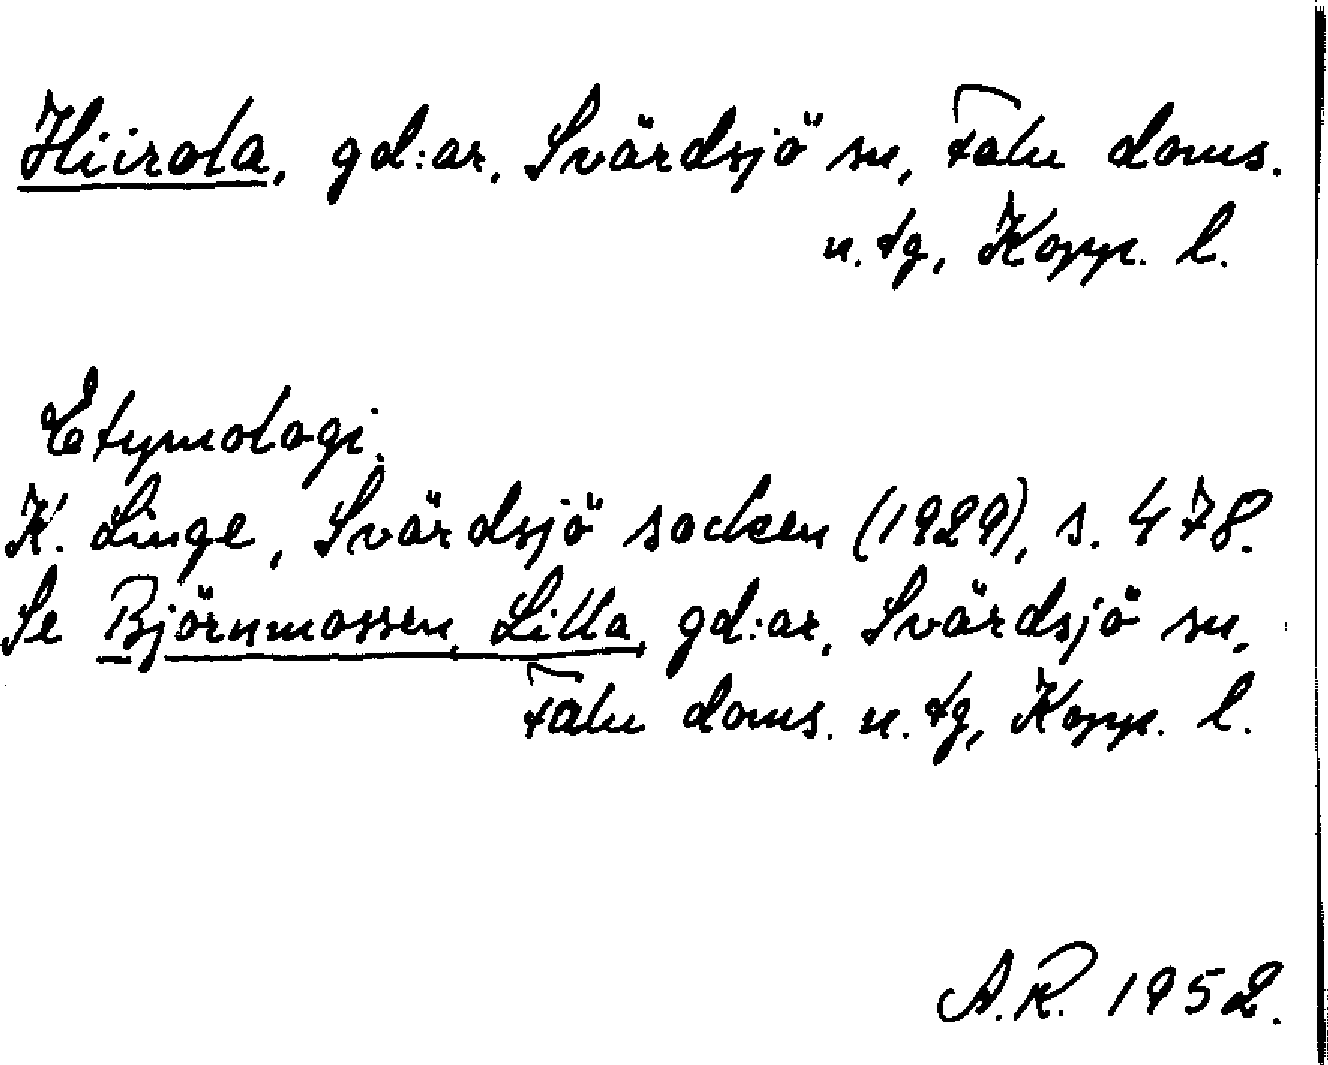 Hiirola, gd:ar, Svärdsjö sn, Falu doms.
n. tg, Kopp. l.
Etymologi.
K. Linge, Svärdsjö socken (1929), s. 478.
Se Björnmossen, Lilla, gd:ar, Svärdsjö sn,
Falu doms. n. tg, Kopp. l.
A.R. 1952.